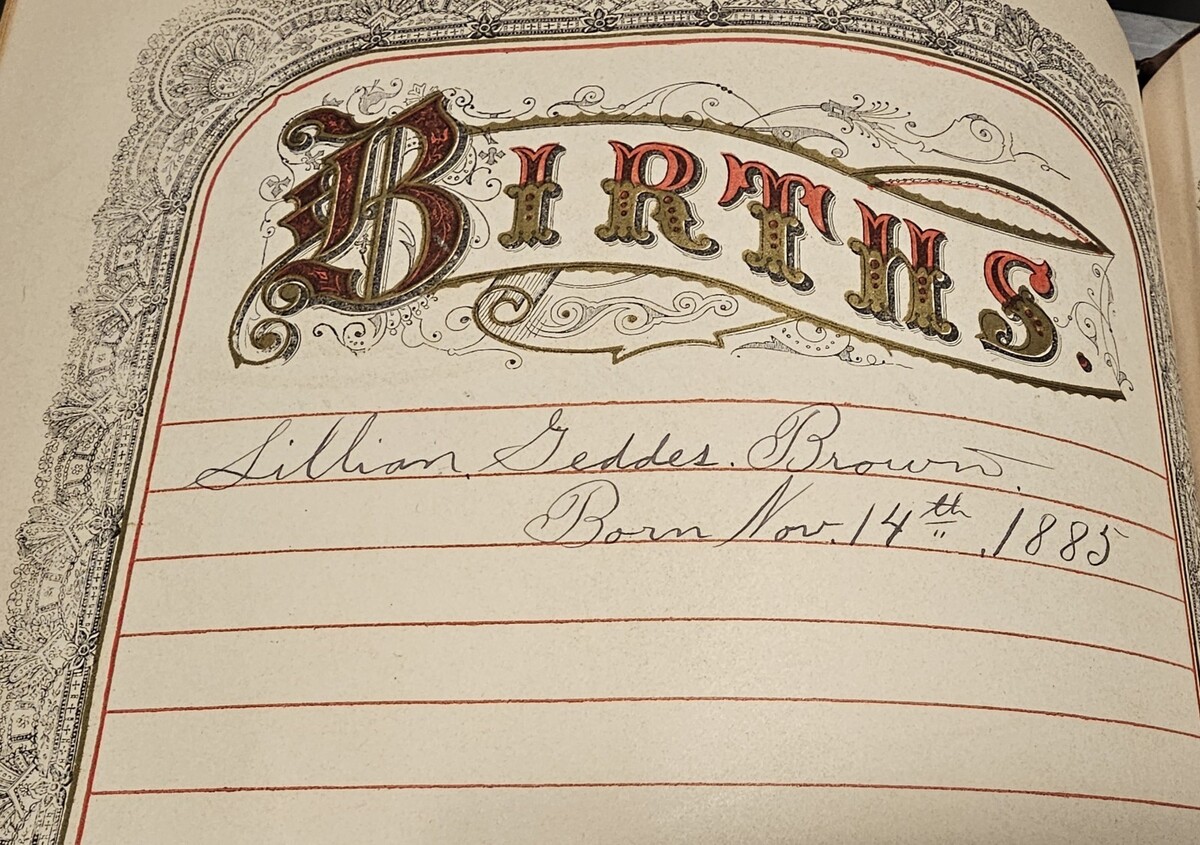 BIRTHS.
Lillian Geddes. Brown.
Born Nov. 14th. 1885